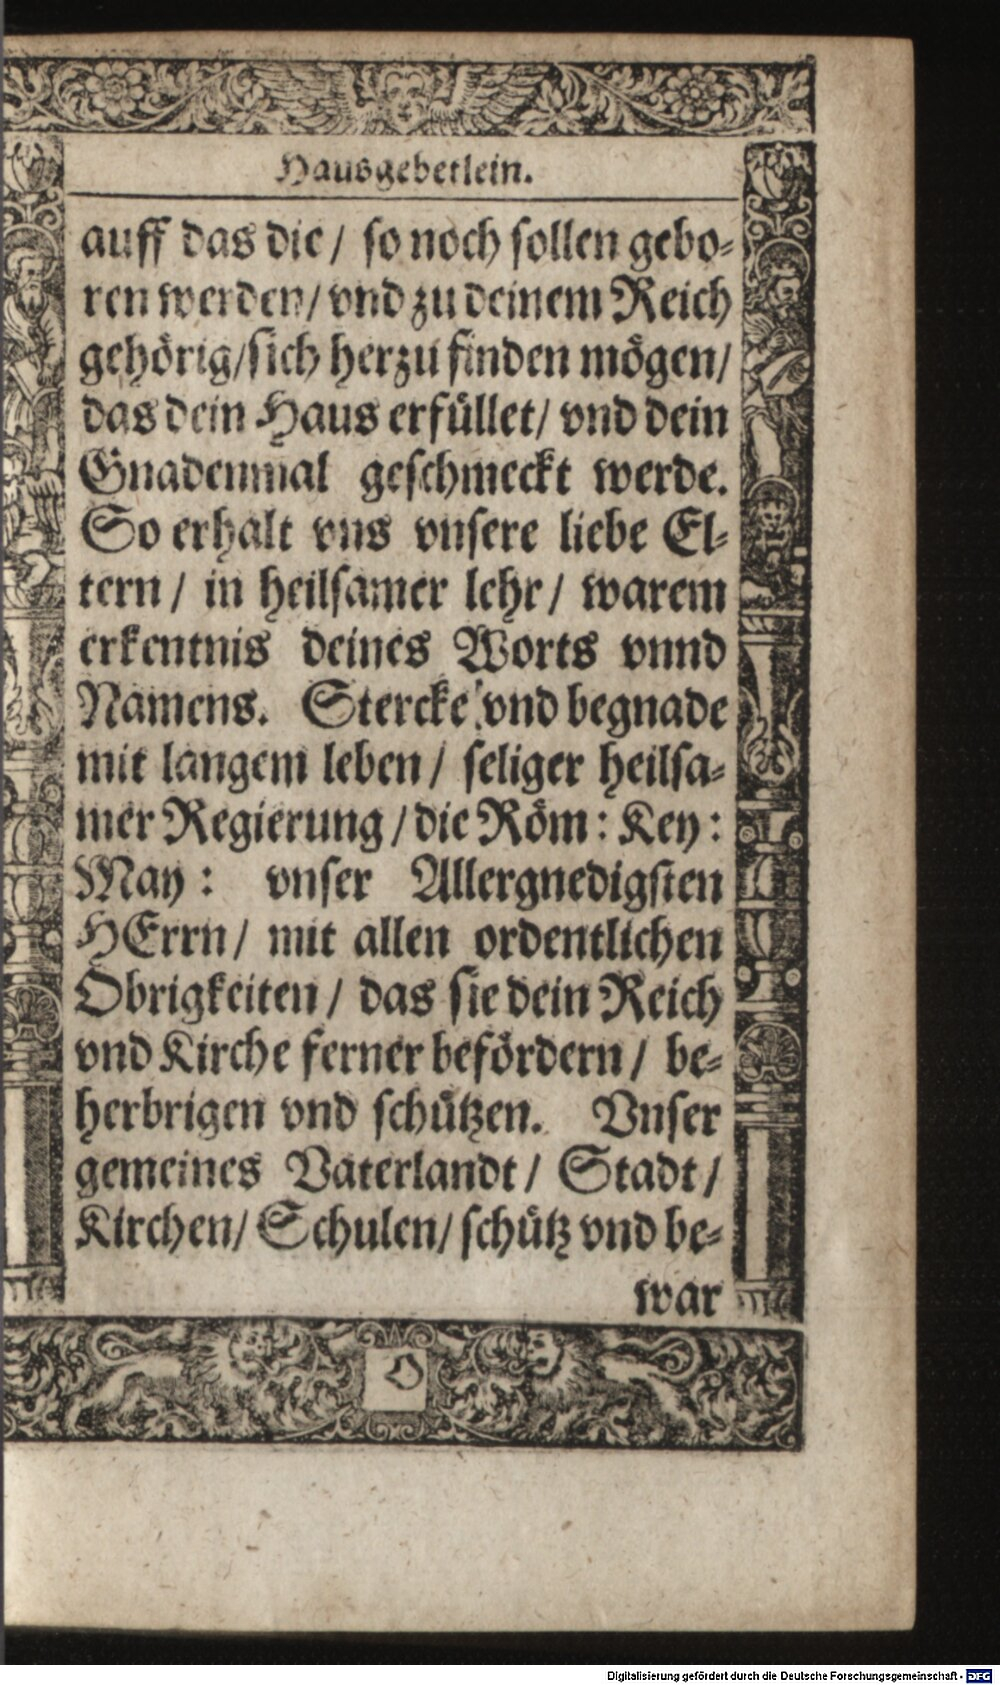 Hausgebetlein.
auff das die / so noch sollen gebo-
ren werden / vnd zu deinem Reich
gehörig / sich herzu finden mögen /
das dein Haus erfüllet / vnd dein
Gnadenmal geschmeckt werde.
So erhalt vns vnsere liebe El-
tern / in heilsamer lehr / warem
erkentnis deines Worts vnnd
Namens. Stercke vnd begnade
mit langem leben / seliger heilsa-
mer Regierung / die Röm: Key:
May: vnser Allergnedigsten
HErrn / mit allen ordentlichen
Obrigkeiten / das sie dein Reich
vnd Kirche ferner befördern / be-
herbrigen vnd schützen. Vnser
gemeines Vaterlandt / Stadt /
Kirchen / Schulen / schütz vnd be-
war
O
Digitalisierung gefördert durch die Deutsche Forschungsgemeinschaft - DFG